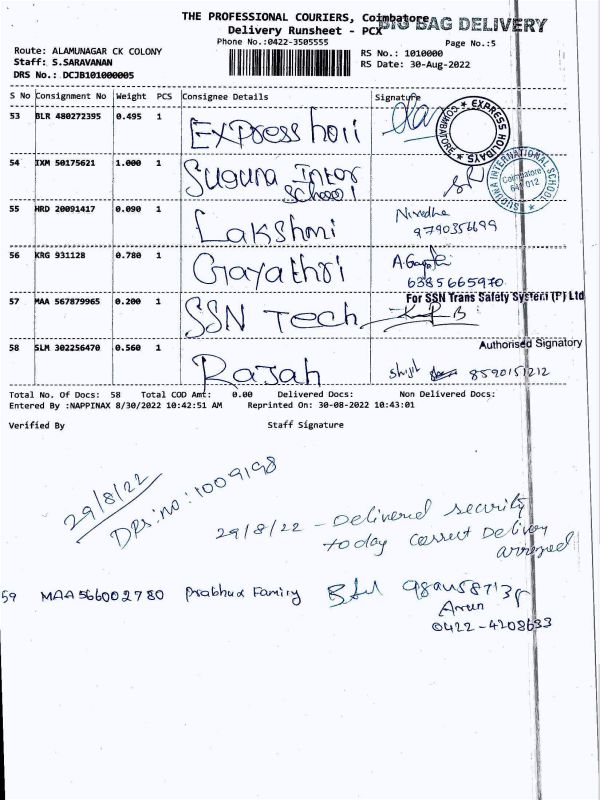 THE PROFESSIONAL COURIERS, Coimbatore
BIG BAG DELIVERY
Delivery Runsheet - PCX
Phone No.:0422-3505555
Page No.:5
Route: ALAMUNAGAR CK COLONY
RS No.: 1010000
Staff: S.SARAVANAN
RS Date: 30-Aug-2022
DRS No.: DCJB101000005
S No Consignment No Weight PCS Consignee Details Signature
53 BLR 480272395 0.495 1 Express holi
★ EXPRESS HOLIDAYS ★ COIMBATORE
54 IXM 50175621 1.000 1 Suguna Inter School
SUGUNA INTERNATIONAL SCHOOL ★ Coimbatore 641 012
55 HRD 20091417 0.090 1 Lakshmi Nivedha
9790356699
56 KRG 931128 0.780 1 Gayathri
6385665970
57 MAA 567879965 0.200 1 SSN Tech For SSN Trans Safety System (P) Ltd
Authorised Signatory
58 SLM 302256470 0.560 1 Rajah Shijil 8590151212
Total No. Of Docs: 58 Total COD Amt: 0.00 Delivered Docs: Non Delivered Docs:
Entered By :NAPPINAX 8/30/2022 10:42:51 AM Reprinted On: 30-08-2022 10:43:01
Verified By Staff Signature
29/8/22
DRS:no:1009198
29/8/22 - Delivered security
today correct Delivery
arranged
59 MAA566002780 Prabhux Family
Arun
0422-4208633